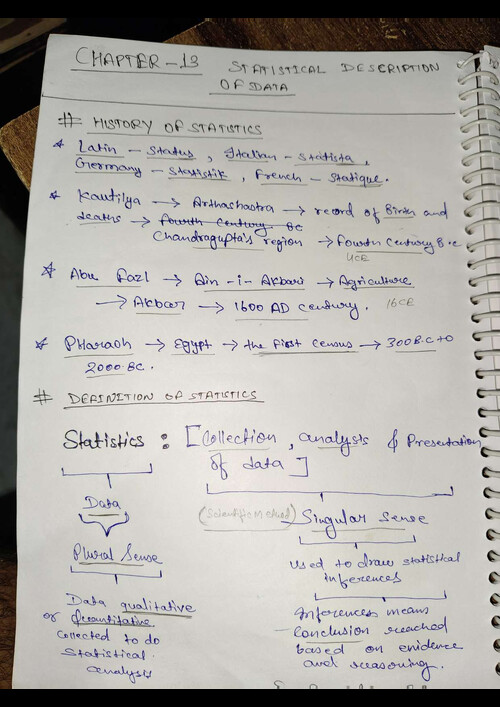 CHAPTER-13 STATISTICAL DESCRIPTION
OF DATA
# HISTORY OF STATISTICS
* Latin - Status, Italian - Statista,
Germany - Statistik, French - Statique.
* Kautilya → Arthashastra → record of Birth and
deaths → fourth century BC
Chandragupta's region → Fourth Century B.C
4CB
* Abu Fazl → Ain-i-Akbari → Agriculture
→ Akbar → 1600 AD century. 16CB
* Pharaoh → Egypt → the first Census → 300 B.C to
2000 BC.
# DEFINITION OF STATISTICS
Statistics : [Collection, analysis & Presentation
of data]
Data
Plural Sense
Data qualitative
or Quantitative
collected to do
statistical
analysis
(Scientific Method) Singular Sense
used to draw statistical
inferences
Inferences means
Conclusion reached
based on evidence
and reasoning.